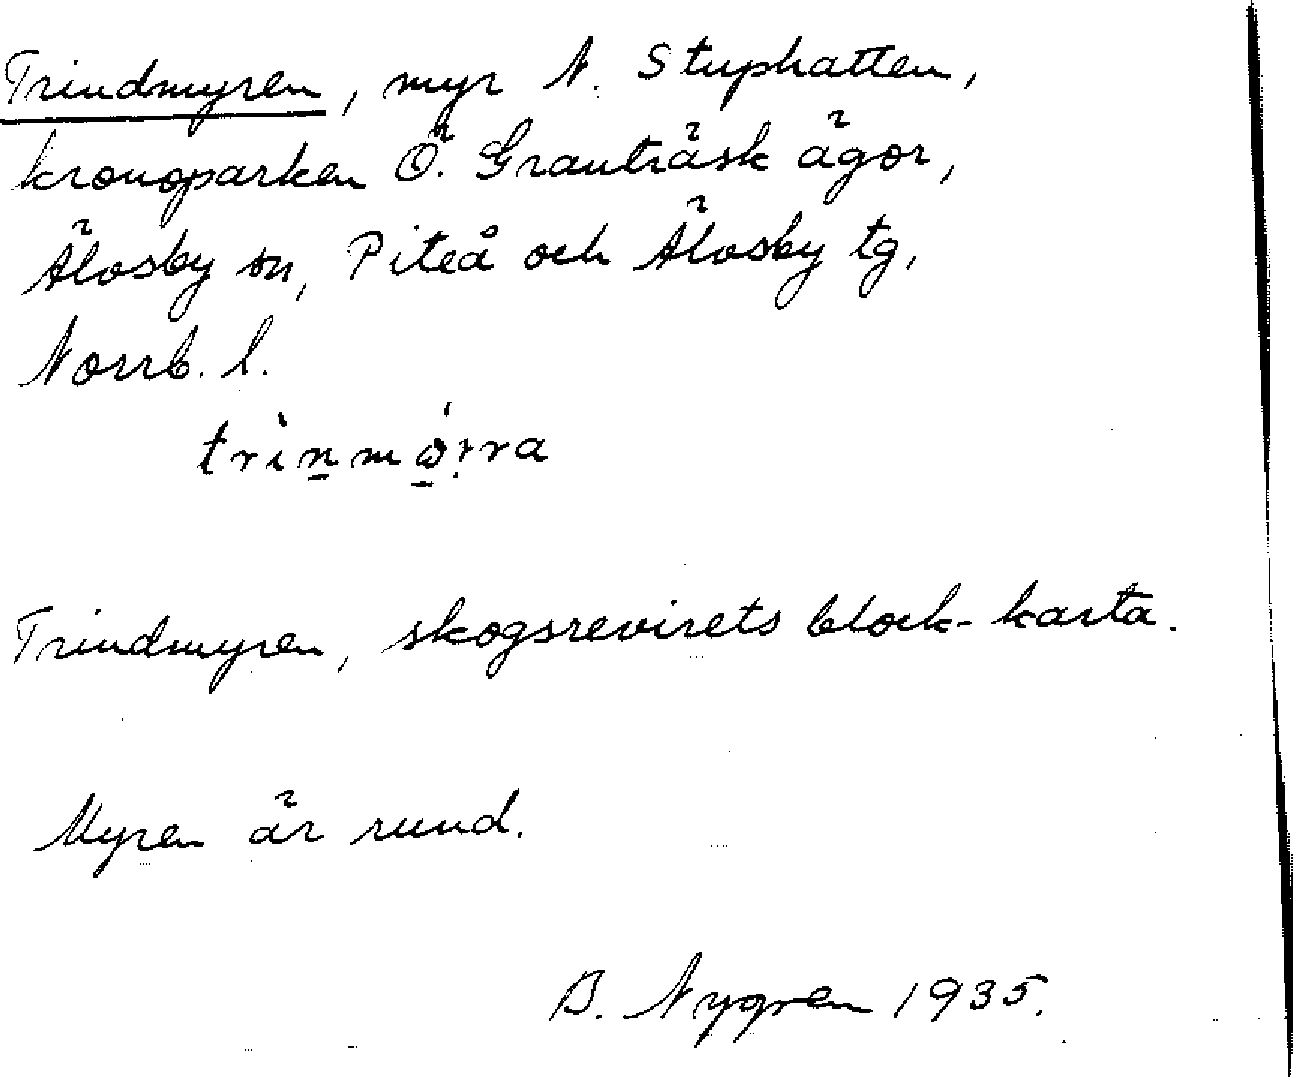 Trindmyren, myr N. Stuphatten,
kronoparken Ö. Granträsk ägor,
Älvsby sn, Piteå och Älvsby tg,
Norrb. l.
Trindmyren, skogsrevirets block-karta.
Myren är rund.
B. Nygren 1935.